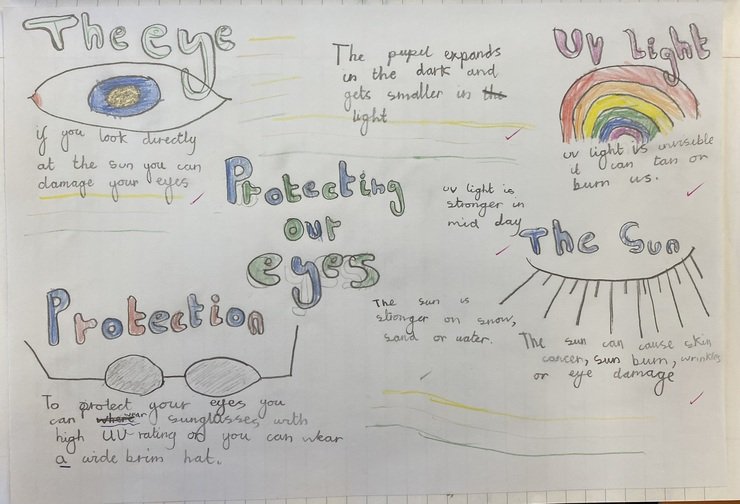 The eye
if you look directly
at the sun you can
damage your eyes
The pupel expands
in the dark and
gets smaller in the
light
UV Light
uv light is invisible
it can tan or
burn us.
Protecting
our
eyes
uv light is
stronger in
mid day
The Sun
The sun can cause skin
cancer, sun burn, wrinkles
or eye damage
The sun is
stronger on snow,
sand or water.
Protection
To protect your eyes you
can where wear sunglasses with
high UV rating or you can wear
a wide brim hat.